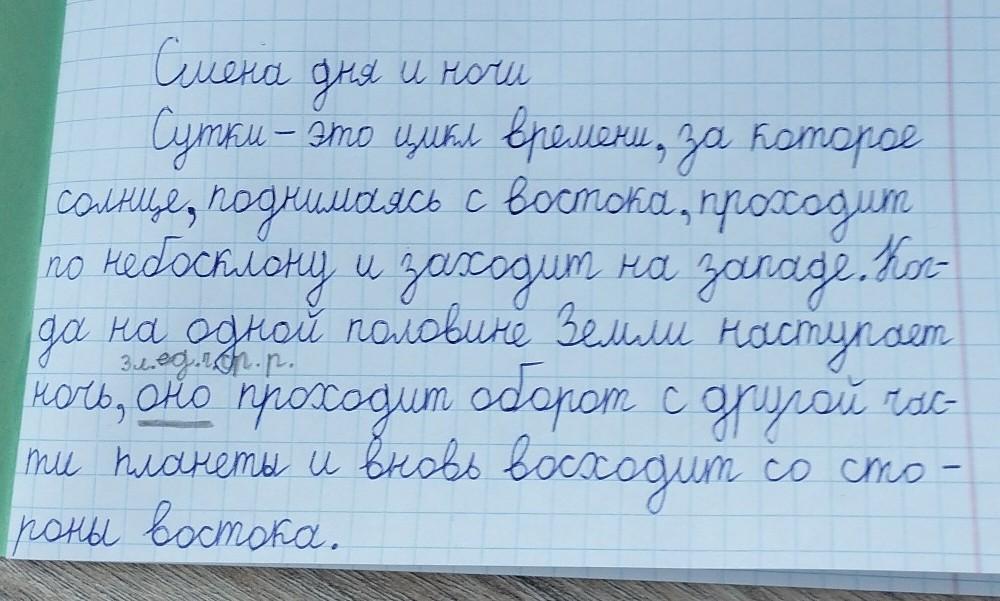 Смена дня и ночи
Сутки – это цикл времени, за которое
солнце, поднимаясь с востока, проходит
по небосклону и заходит на западе. Ког-
да на одной половине Земли наступает
3 л. ед. ч, ср. р.
ночь, оно проходит оборот с другой час-
ти планеты и вновь восходит со сто-
роны востока.